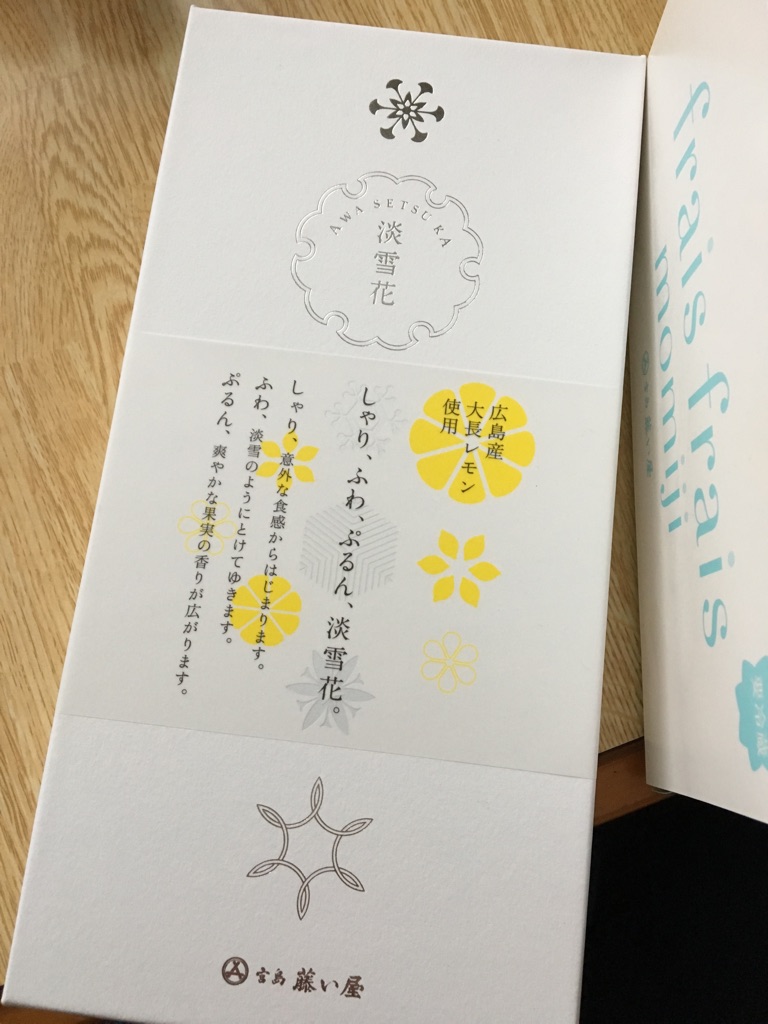 AWA SETSUKA
淡雪花
広島産
大長レモン
使用
しゃり、ふわ、ぷるん、淡雪花。
しゃり、意外な食感からはじまります。
ふわ、淡雪のようにとけてゆきます。
ぷるん、爽やかな果実の香りが広がります。
宮島 藤い屋
frais frais
momiji
藤い屋
要冷蔵